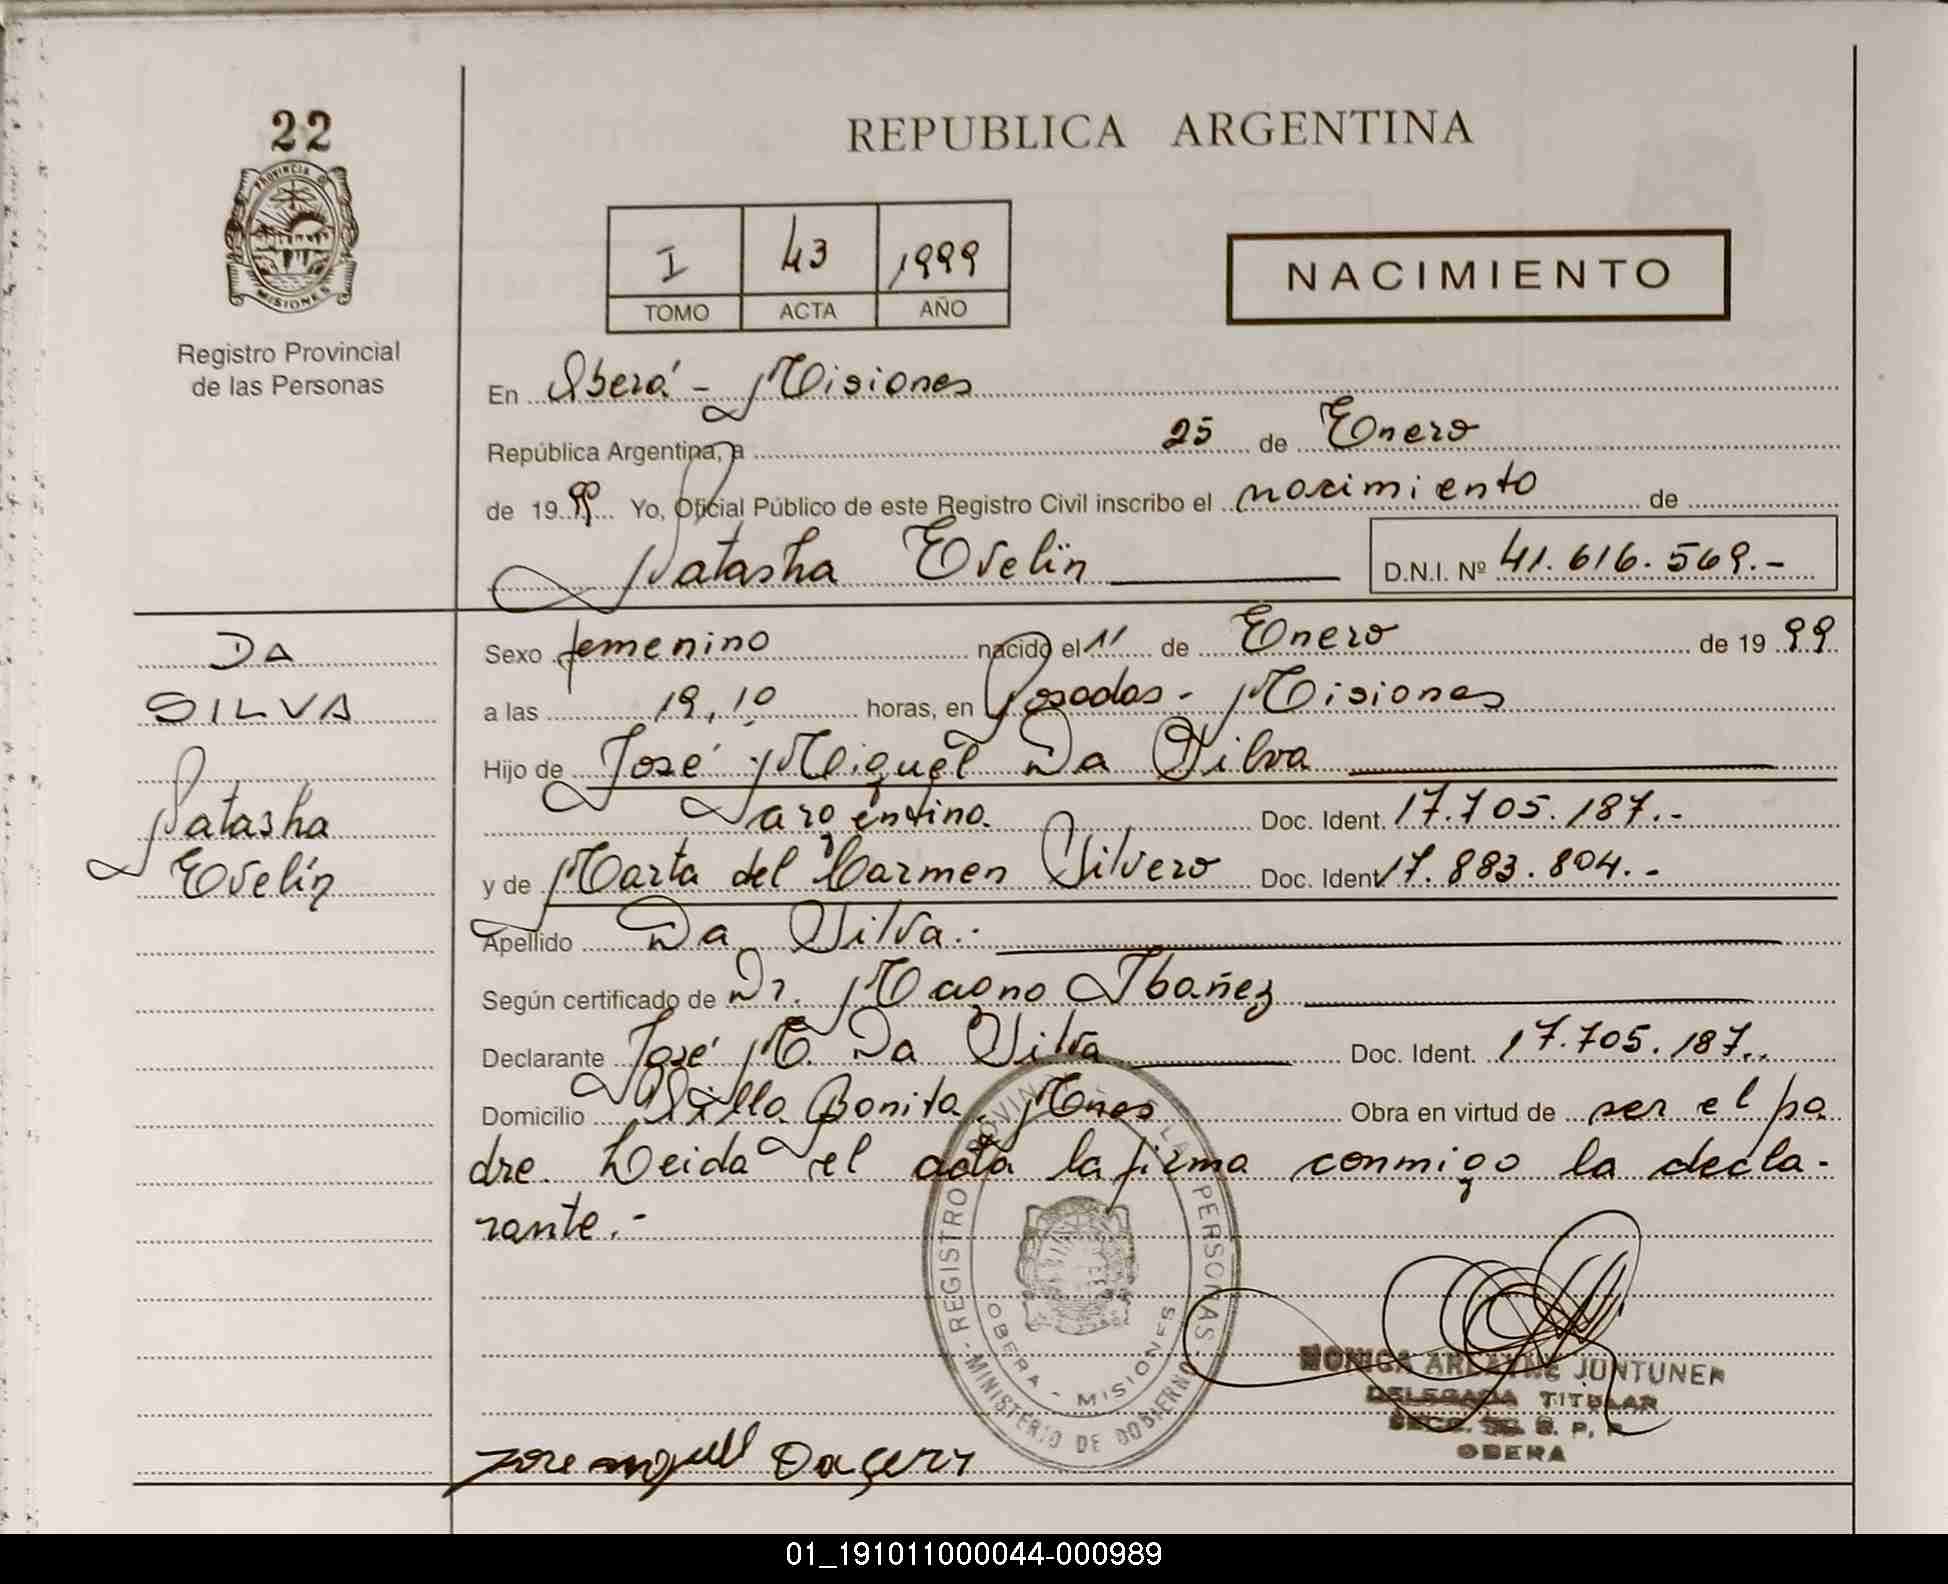 22
PROVINCIA D
MISIONES
Registro Provincial
de las Personas
REPUBLICA ARGENTINA
I 43 1999
TOMO ACTA AÑO
NACIMIENTO
En Oberá - Misiones
República Argentina, a 25 de Enero
de 1999 Yo, Oficial Público de este Registro Civil inscribo el nacimiento de
Natasha Evelin D.N.I. Nº 41.616.569.-
DA
SILVA
Natasha
Evelin
Sexo femenino nacido el 11 de Enero de 1999
a las 19,10 horas, en Posadas - Misiones
Hijo de José Miguel Da Silva
argentino. Doc. Ident. 17.705.187.-
y de Marta del Carmen Silvero Doc. Ident 17.883.804.-
Apellido Da Silva.-
Según certificado de Dr. Magno Ibañez
Declarante José M. Da Silva Doc. Ident. 17.705.187..
Domicilio Villa Bonita, Mnes Obra en virtud de ser el pa
dre. Leida el acta la firma conmigo la decla-
rante.-
REGISTRO PROVINCIAL DE LAS PERSONAS
OBERA - MISIONES
- MINISTERIO DE GOBIERNO -
MONICA ARLAYNE JUNTUNEN
DELEGADA TITULAR
OBERA
Jose miguell Da
01_191011000044-000989